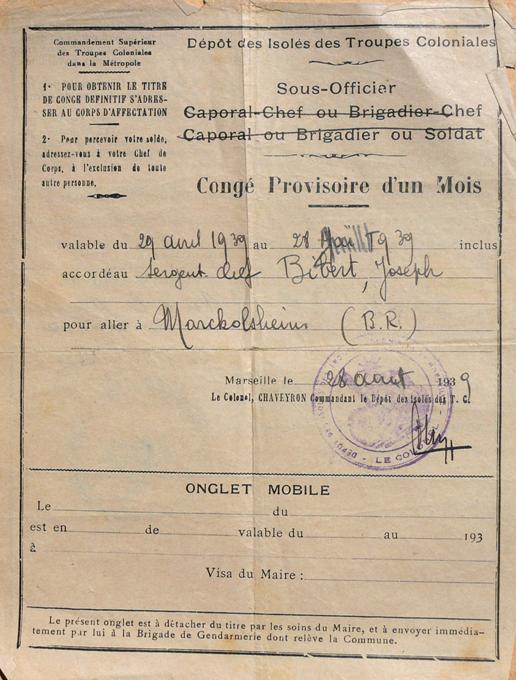 Commandement Supérieur
des Troupes Coloniales
dans la Métropole
1· POUR OBTENIR LE TITRE
DE CONGÉ DEFINITIF S'ADRES-
SER AU CORPS D'AFFECTATION
2· Pour percevoir votre solde,
adressez-vous à votre Chef de
Corps, à l'exclusion de toute
autre personne.
Dépôt des Isolés des Troupes Coloniales
Sous-Officier
Caporal-Chef ou Brigadier-Chef
Caporal ou Brigadier ou Soldat
Congé Provisoire d'un Mois
valable du 29 avril 1939 au 28 1939 inclus
accordé au sergent chef Bibert, Joseph
pour aller à Marckolsheim (B.R.)
Marseille le 28 1939
Le Colonel, CHAVEYRON Commandant le Dépôt des isolés des T. C.
LE COLONEL
ONGLET MOBILE
Le du
est en de valable du au 193
à
Visa du Maire :
Le présent onglet est à détacher du titre par les soins du Maire, et à envoyer immédia-
tement par lui à la Brigade de Gendarmerie dont relève la Commune.